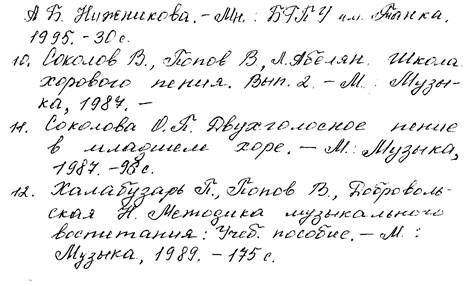 А Б. Нижникова. – Мн.: БГПУ им. Танка,
1995. – 30 с.
10. Соколов В., Попов В, Л. Абелян. Школа
хорового пения. Вып. 2. – М.: Музы-
ка, 1987. –
11. Соколова О.П. Двухголосное пение
в младшем хоре. – М.: Музыка,
1987. – 98 с.
12. Халабузарь П., Попов В., Доброволь-
ская Н. Методика музыкального
воспитания: Учеб. пособие. – М.:
Музыка, 1989. – 175 с.